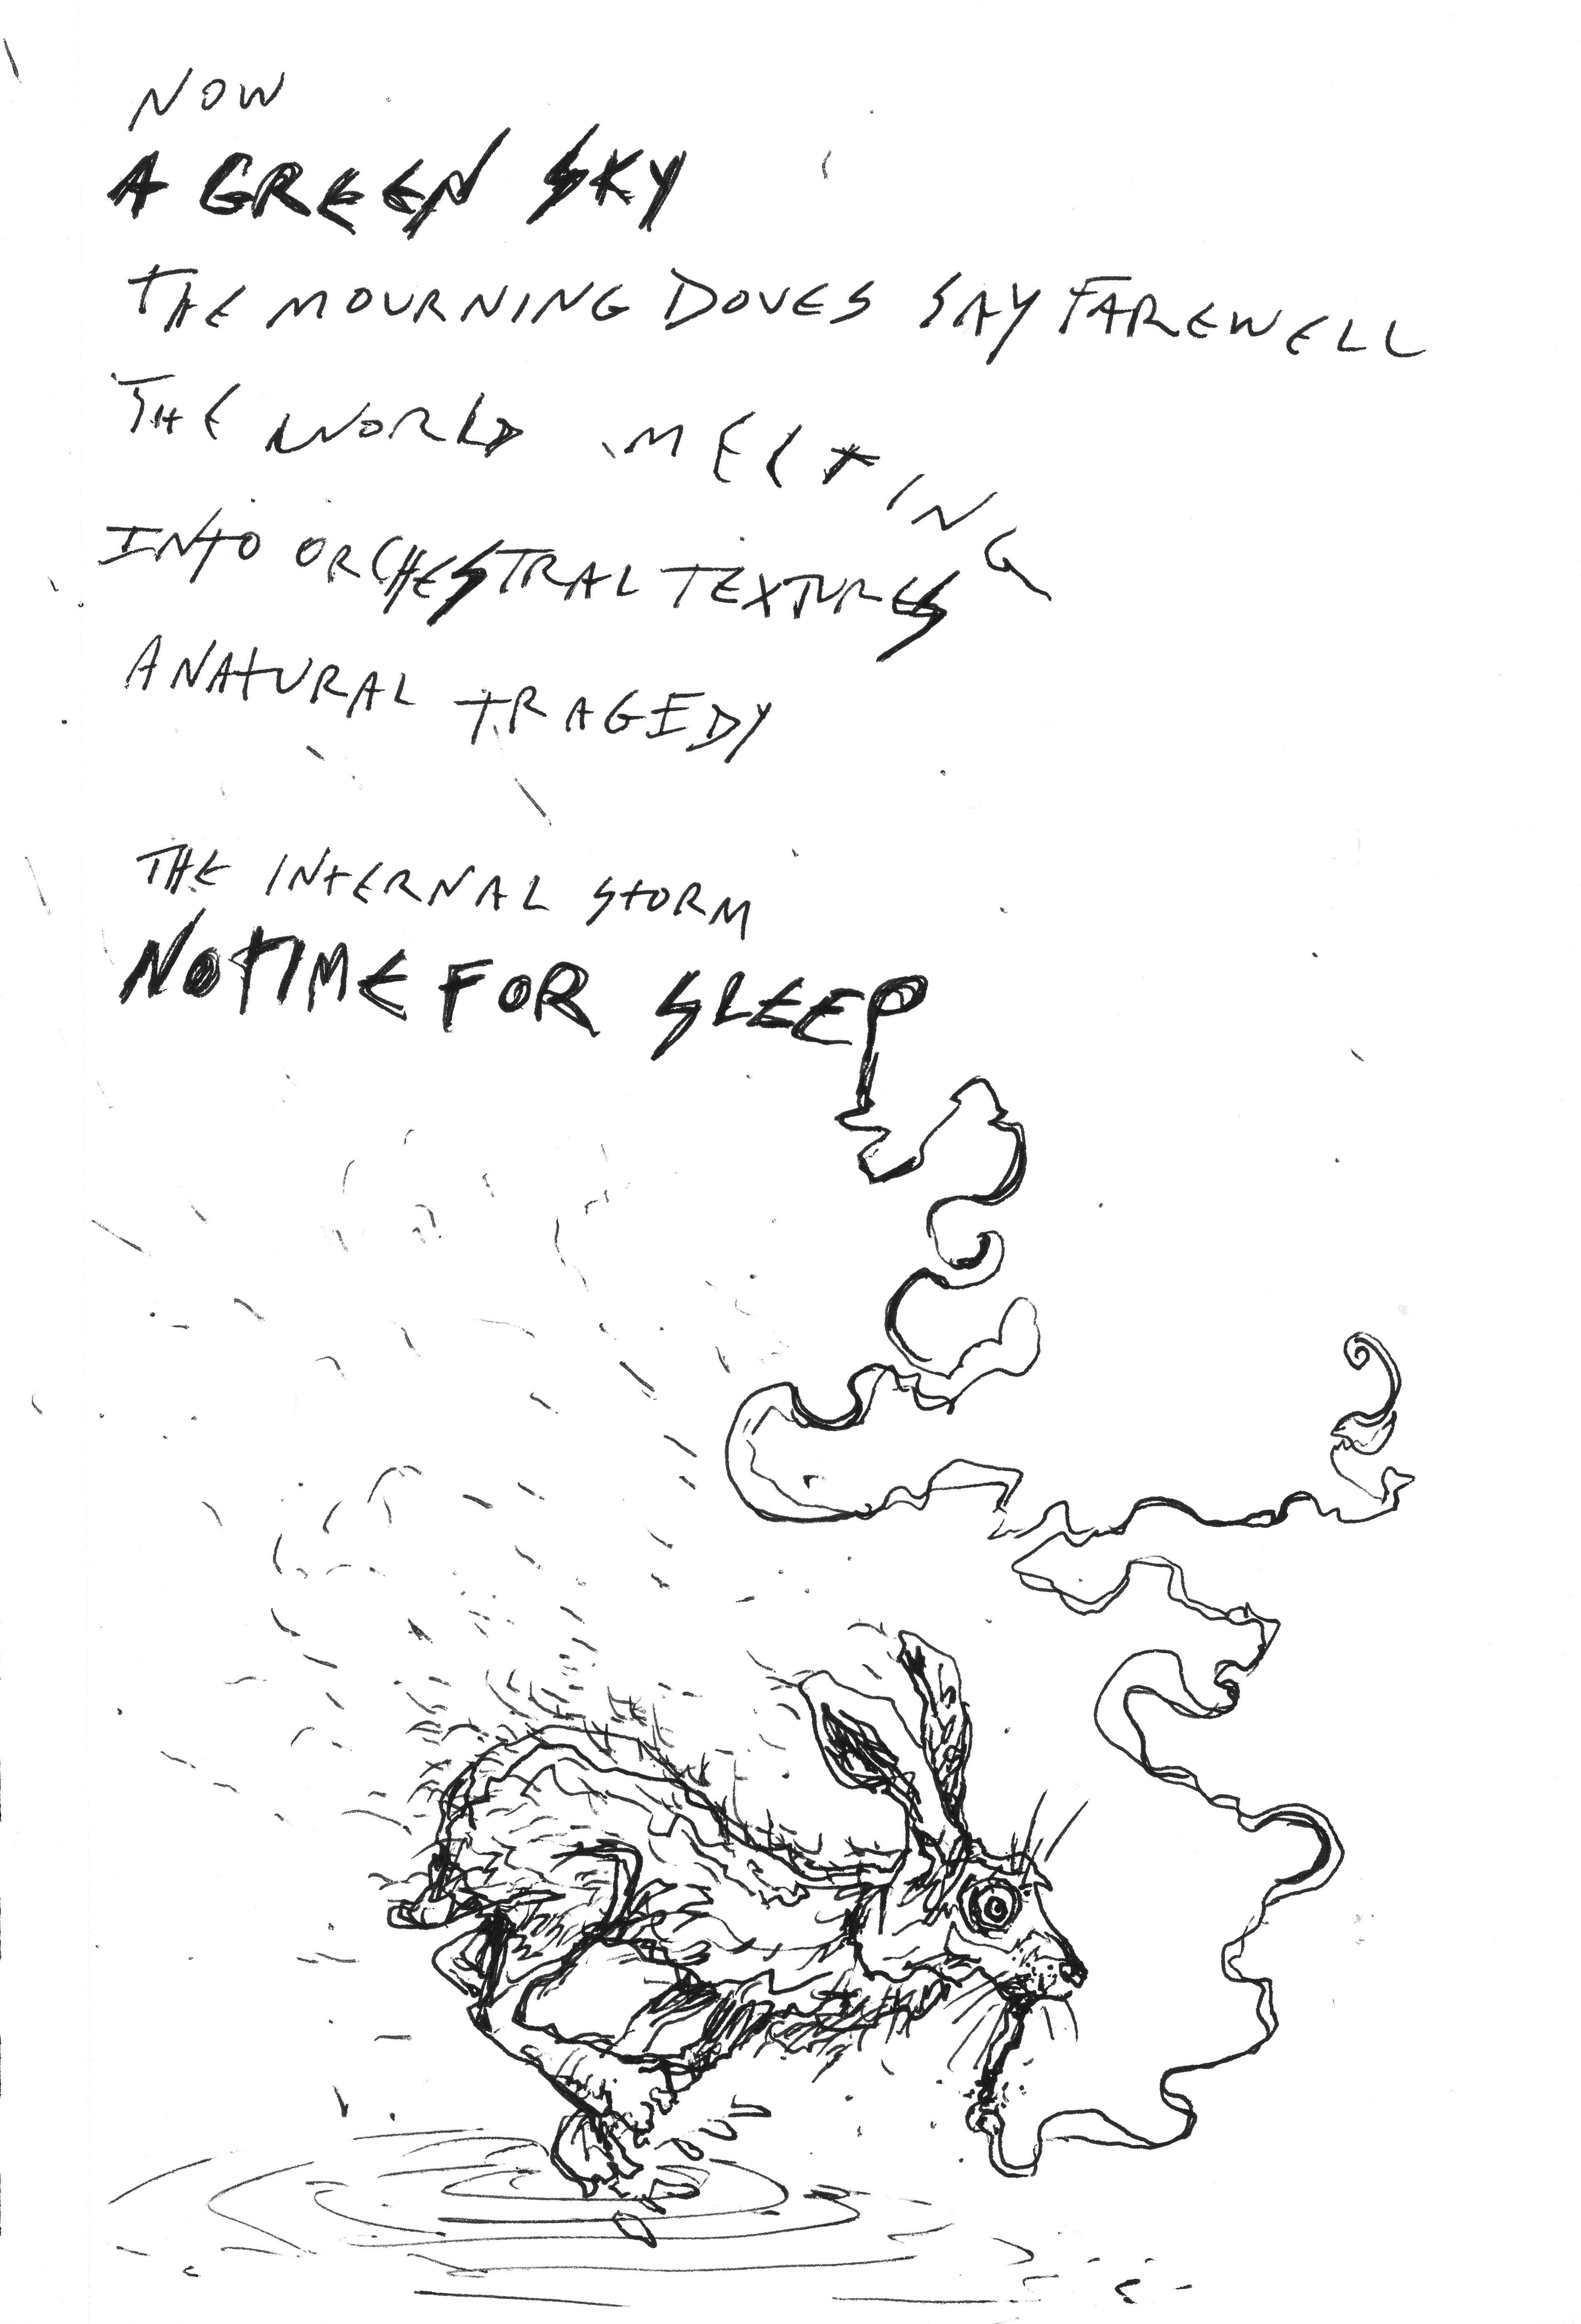 NOW
A GREEN SKY
THE MOURNING DOVES SAY FAREWELL
THE WORLD MELTING
INTO ORCHESTRAL TEXTURES
A NATURAL TRAGEDY
THE INTERNAL STORM
NO TIME FOR SLEEP